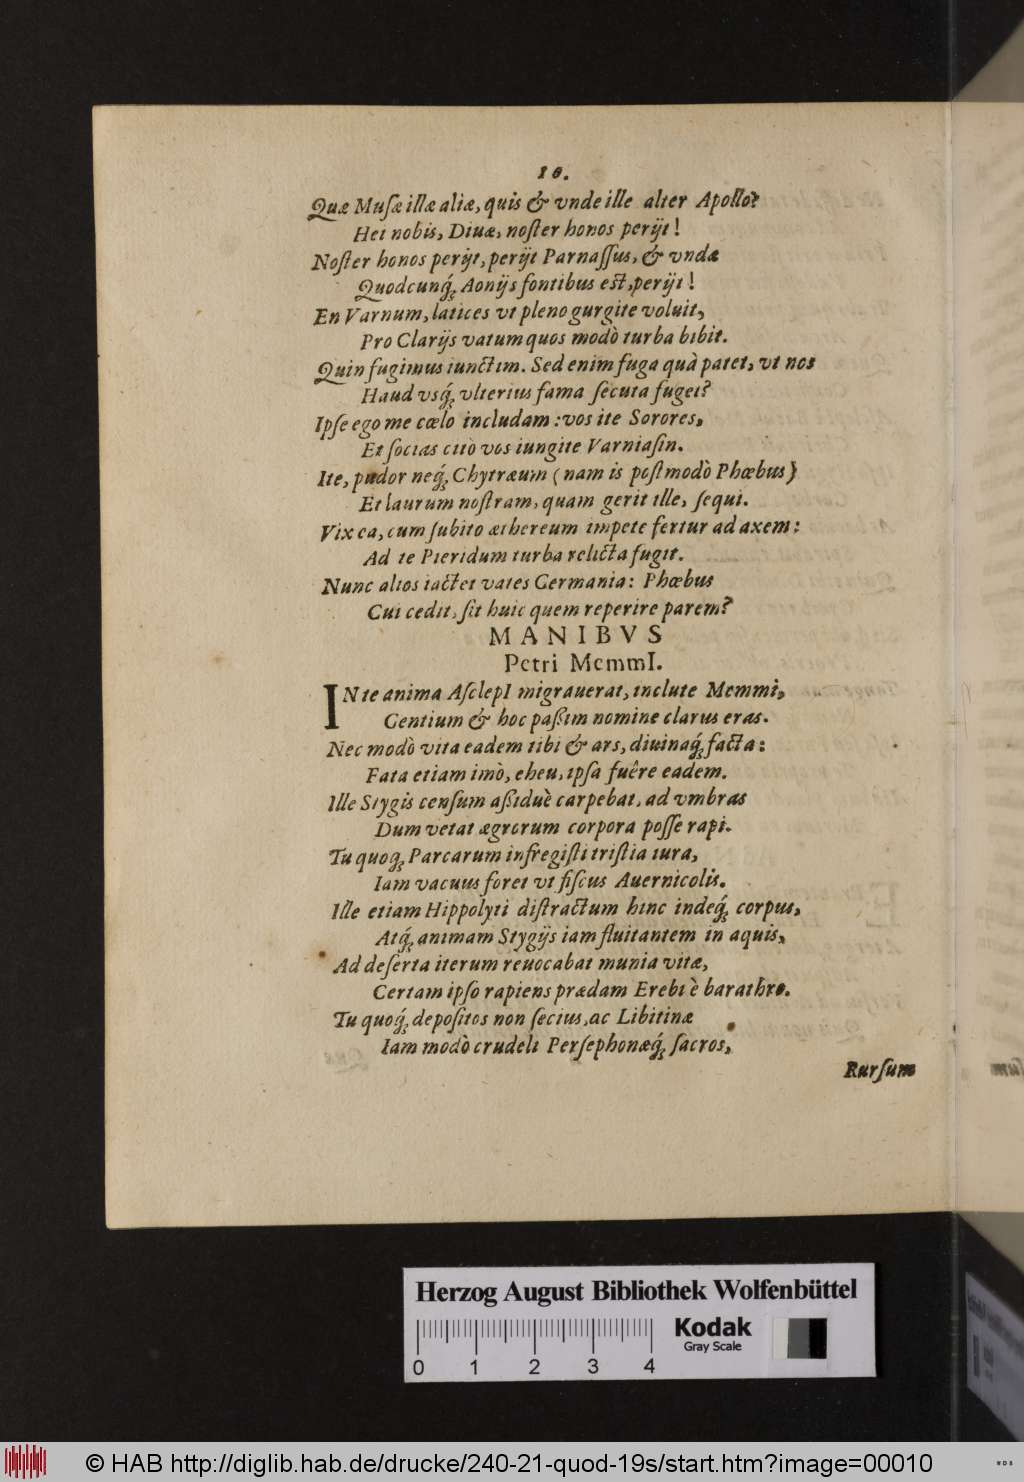 10.
Quæ Muſæ illæ aliæ, quis & vnde ille alter Apollo?
Hei nobis, Diuæ, noſter honos perijt!
Noſter honos perijt, perijt Parnaſſus, & vndæ
Quodcunq́; Aonijs fontibus eſt, perijt!
En Varnum, latices vt pleno gurgite voluit,
Pro Clarijs vatum quos modò turba bibit.
Quin fugimus iunctim. Sed enim fuga quà patet, vt nos
Haud vsq́; vlterius fama ſecuta fuget?
Ipſe ego me cœlo includam: vos ite Sorores,
Et ſocias citò vos iungite Varniaſin.
Ite, pudor neq́; Chytræum (nam is poſtmodò Phœbus)
Et laurum noſtram, quam gerit ille, ſequi.
Vix ea, cum ſubito æthereum impete fertur ad axem:
Ad te Pieridum turba relicta fugit.
Nunc alios iactet vates Germania: Phœbus
Cui cedit, ſit huic quem reperire parem?
MANIBVS
Petri MemmI.
IN te anima AſclepI migrauerat, inclute Memmi,
Gentium & hoc paßim nomine clarus eras.
Nec modò vita eadem tibi & ars, diuinaq́; facta:
Fata etiam imò, eheu, ipſa fuêre eadem.
Ille Stygis cenſum aßiduè carpebat, ad vmbras
Dum vetat ægrorum corpora poſſe rapi.
Tu quoq; Parcarum infregiſti triſtia iura,
Iam vacuus foret vt fiſcus Auernicolis.
Ille etiam Hippolyti diſtractum hinc indeq́; corpus,
Atq́; animam Stygijs iam fluitantem in aquis,
Ad deſerta iterum reuocabat munia vitæ,
Certam ipſo rapiens prædam Erebi è barathro.
Tu quoq́; depoſitos non ſecius, ac Libitinæ
Iam modò crudeli Perſephonæq́; ſacros,
Rurſum
Herzog August Bibliothek Wolfenbüttel
Kodak
Gray Scale
0 1 2 3 4
© HAB http://diglib.hab.de/drucke/240-21-quod-19s/start.htm?image=00010